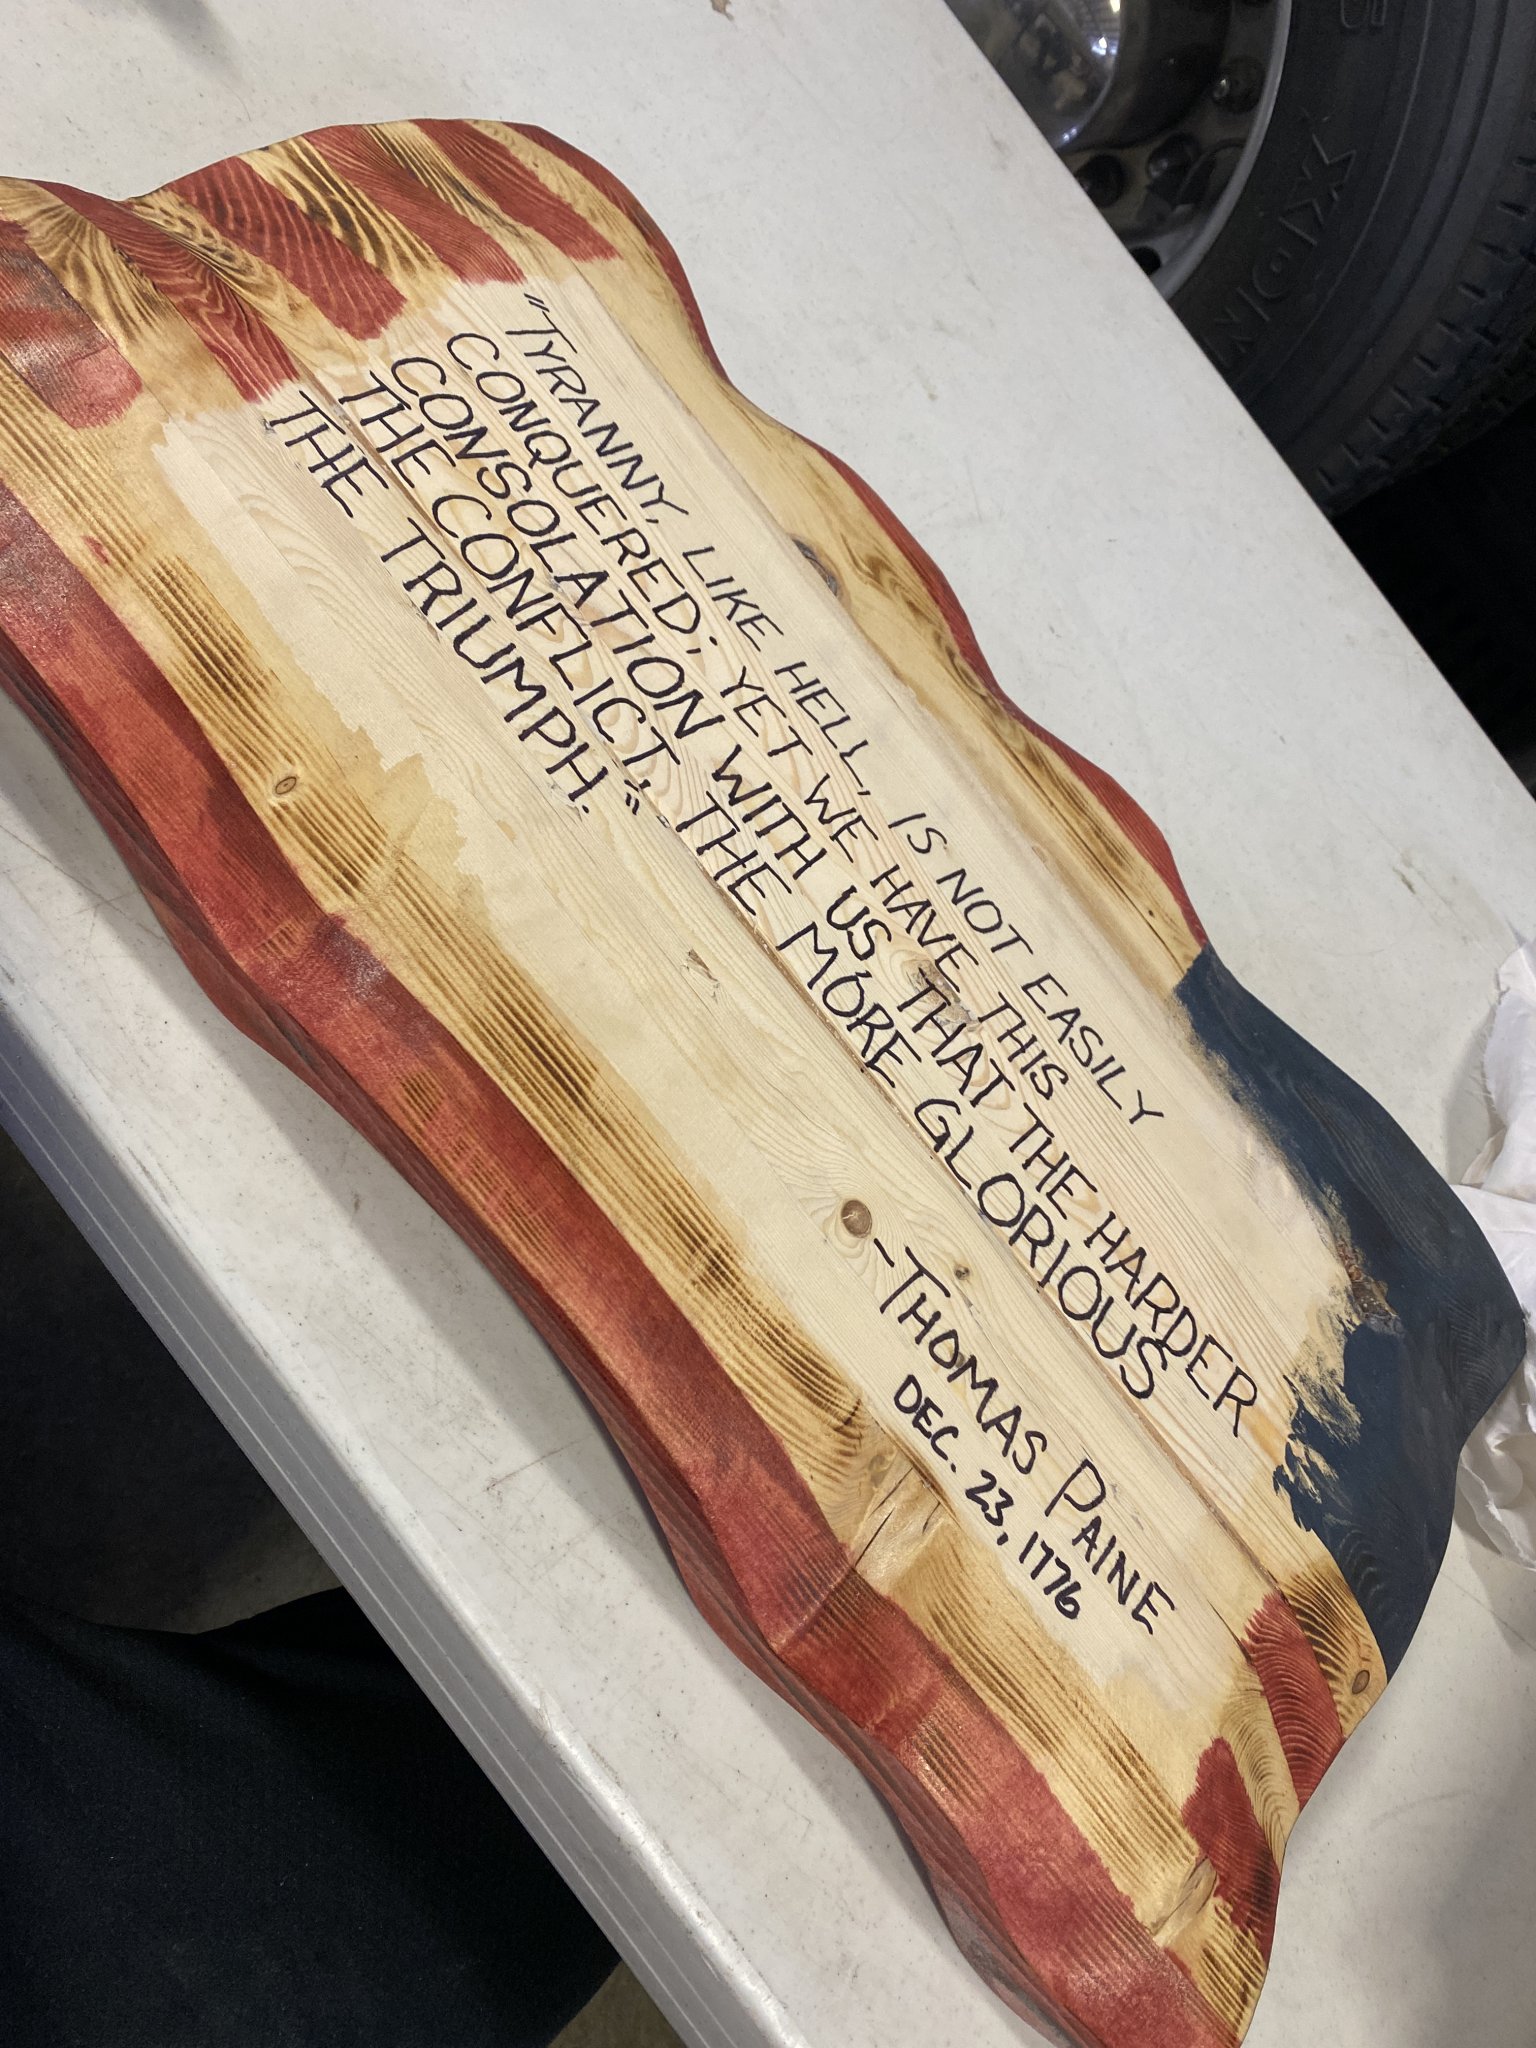 "TYRANNY, LIKE HELL, IS NOT EASILY
CONQUERED; YET WE HAVE THIS
CONSOLATION WITH US THAT THE HARDER
THE CONFLICT, THE MORE GLORIOUS
THE TRIUMPH."
-THOMAS PAINE
DEC. 23, 1776